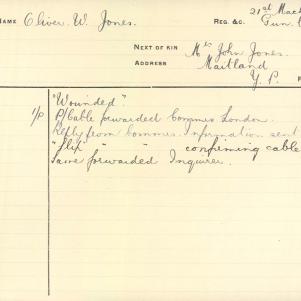 NAME Oliver. W. Jones. REG. &C. 21st Mach
Gun.
NEXT OF KIN Mrs John Jones.
ADDRESS Maitland
Y. P.
"Wounded".
1/p P/Cable forwarded Commrs London.
Reply from Commrs. Information sent
"Slip" " " confirming cable
Same forwarded Inquirer.